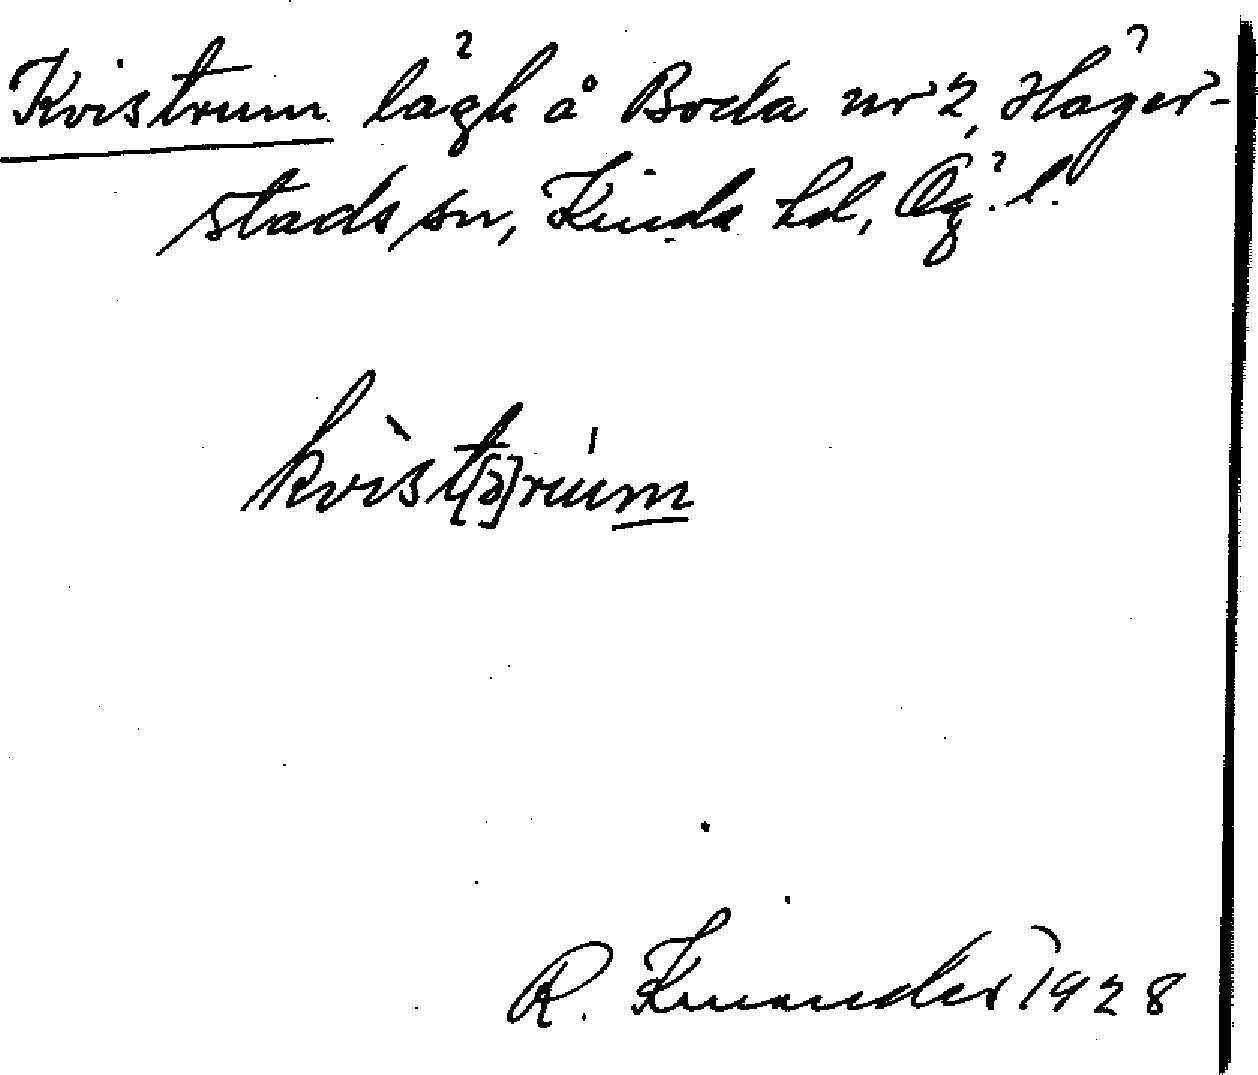 Kvistrum lägh å Boda nr 2, Häger-
stads sn, Kinda hd, Ög. l.
kvìst[ə]rúm
R. Kinander 1928